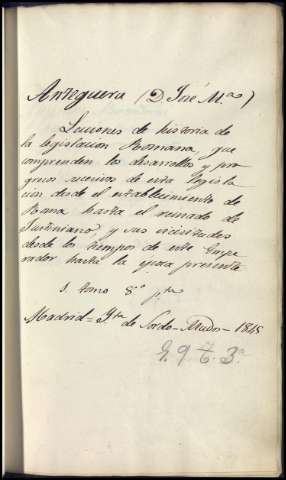 Antequera (D. José M.ª)
Lecciones de historia de
la legislacion Romana, que
comprenden los desarrollos y pro
gresos sucesivos de esta legisla
cion desde el establecimiento de
Roma hasta el reinado de
Justiniano, y sus vicisitudes
desde los tiempos de este Empe
rador hasta la epoca presente
1. tomo 8.º pta
Madrid = Yta de Sordo-Mudos - 1845
G. 9 t. 3.º